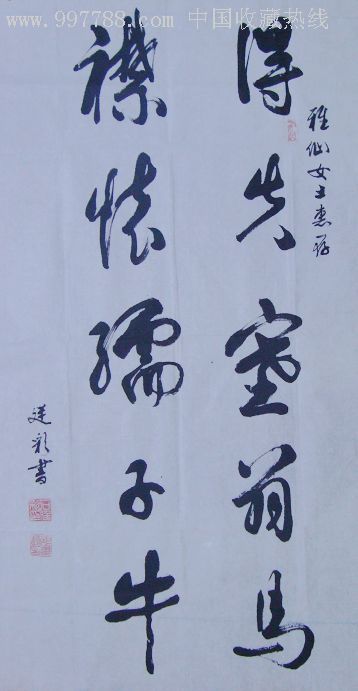 www.997788.com 中国收藏热线
雅仙女士惠存
得失塞翁馬
襟懷孺子牛
彩書